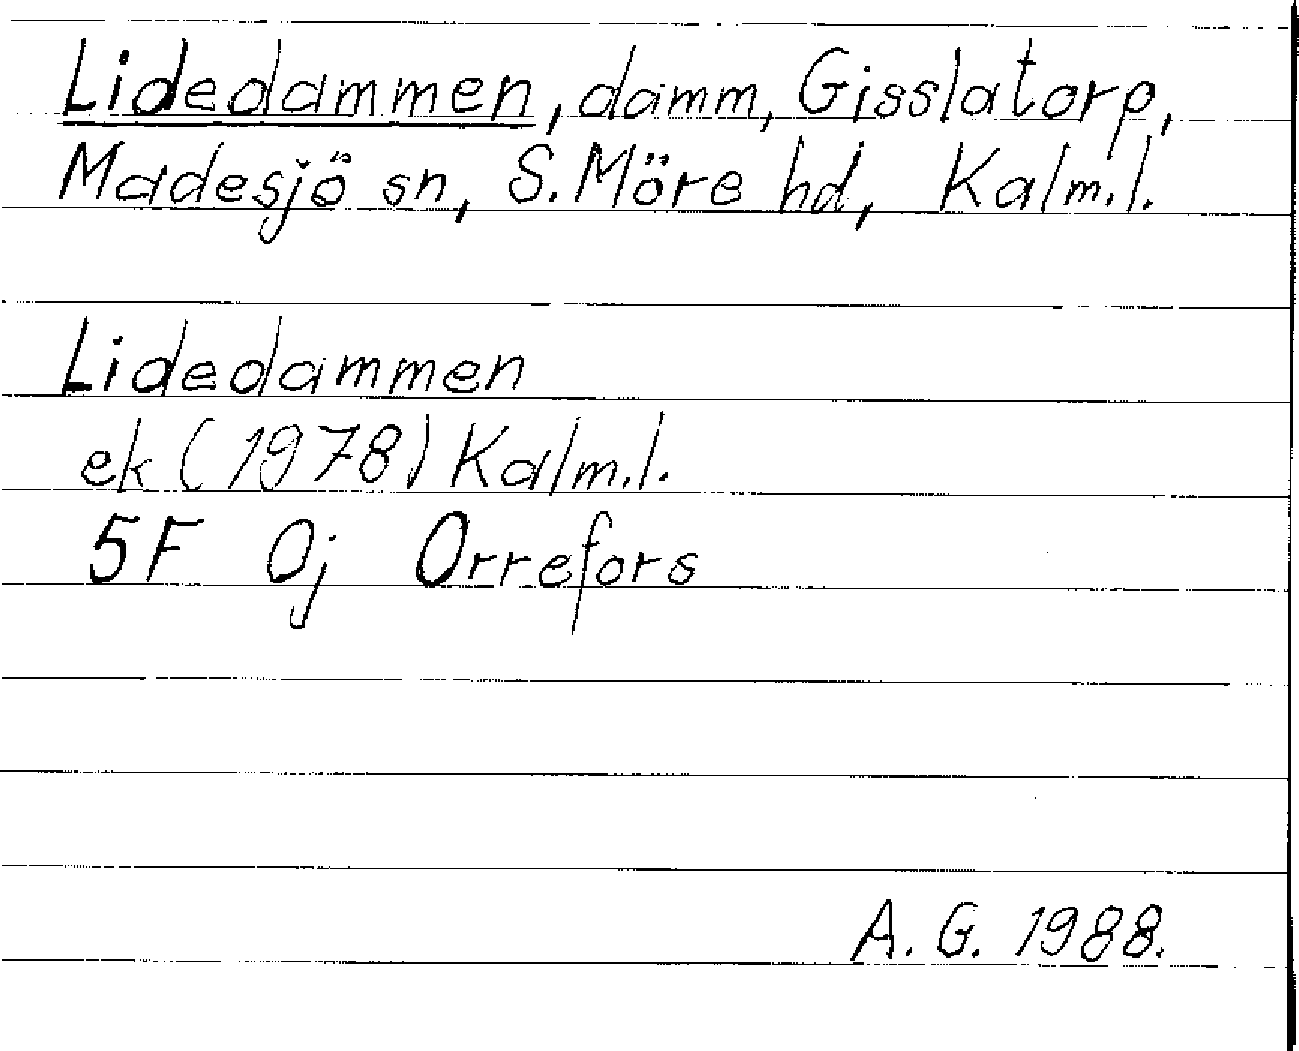 Lidedammen, damm, Gisslatorp,
Madesjö sn, S. Möre hd, Kalm. l.
Lidedammen
ek (1978) Kalm. l.
5F Oj Orrefors
A. G. 1988.